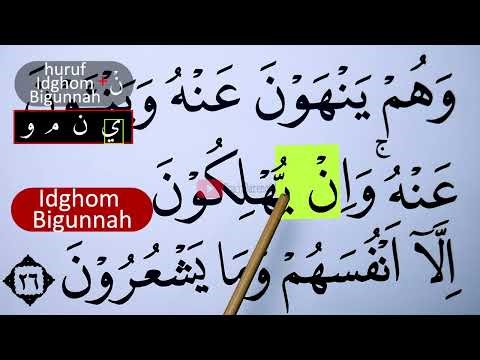 huruf
Idghom + نْ
Bigunnah
ي ن م و
وَهُمْ يَنْهَوْنَ عَنْهُ
عَنْهُ ۚ وَاِنْ يُّهْلِكُوْنَ
Idghom
Bigunnah
اِلَّآ اَنْفُسَهُمْ وَمَا يَشْعُرُوْنَ ٢٦